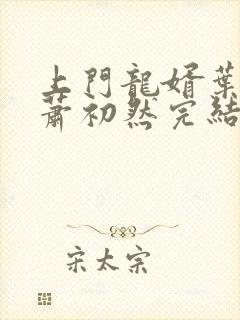 上門龍婿葉
蕭初然完結
宋太宗